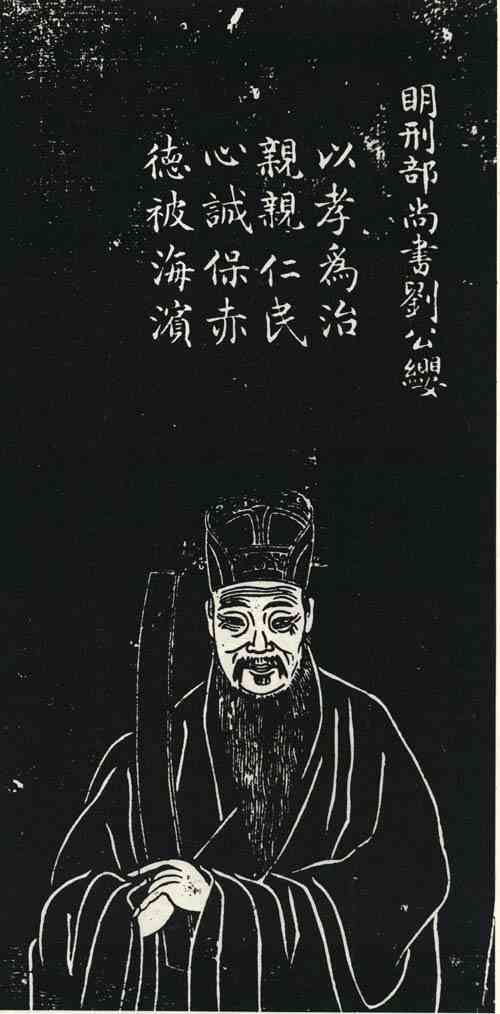 明刑部尚書劉公纓
以孝爲治
親親仁民
心誠保赤
德被海濱